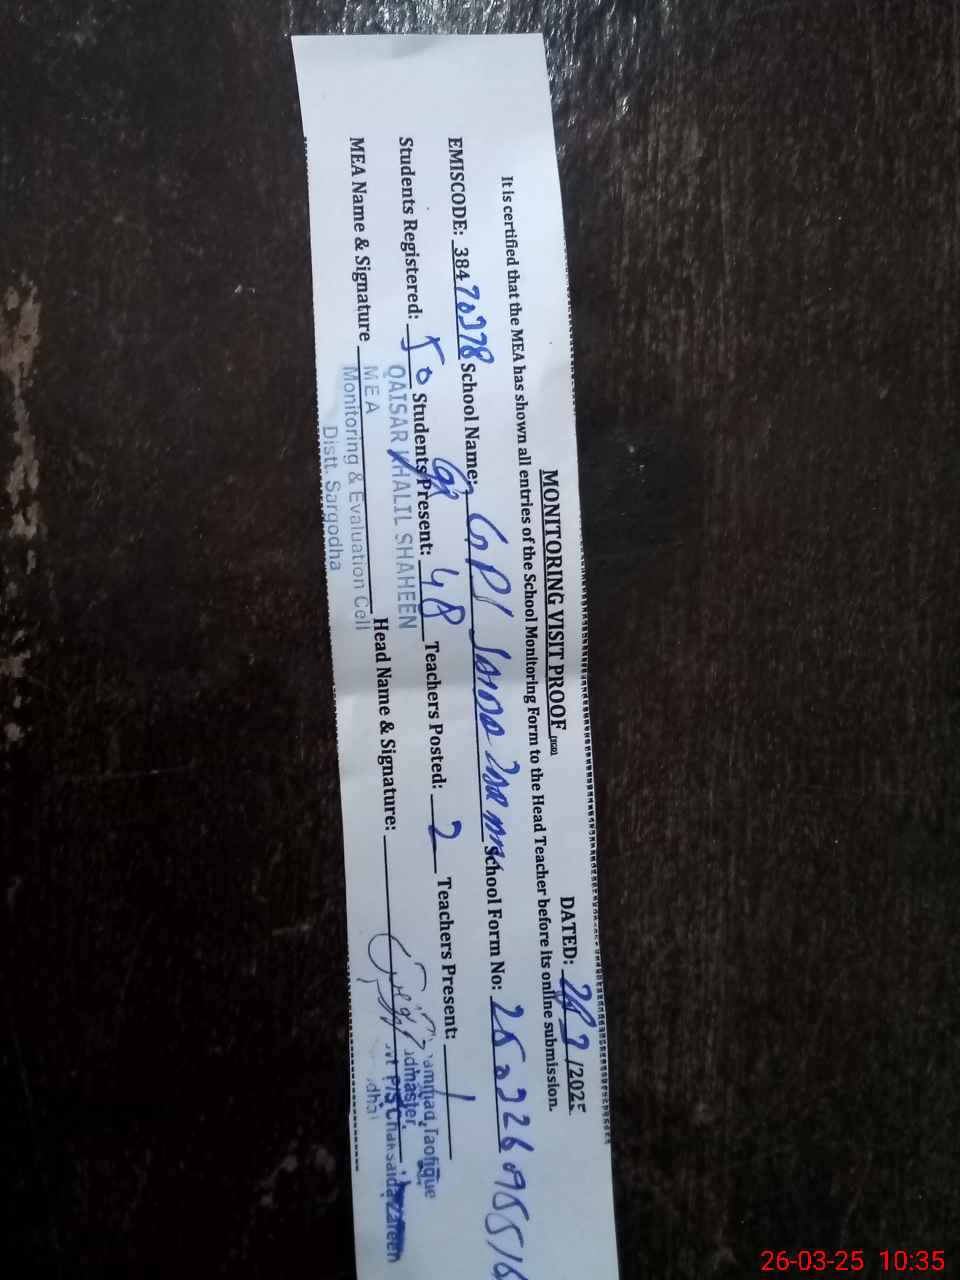 MONITORING VISIT PROOF
DATED: /2025
It is certified that the MEA has shown all entries of the School Monitoring Form to the Head Teacher before its online submission.
EMISCODE: 38470278 School Name: School Form No:
Students Registered: 50 Students Present: 48 Teachers Posted: 2 Teachers Present: 1
MEA Name & Signature Head Name & Signature:
QAISAR KHALIL SHAHEEN
MEA
Monitoring & Evaluation Cell
Distt. Sargodha
26-03-25 10:35